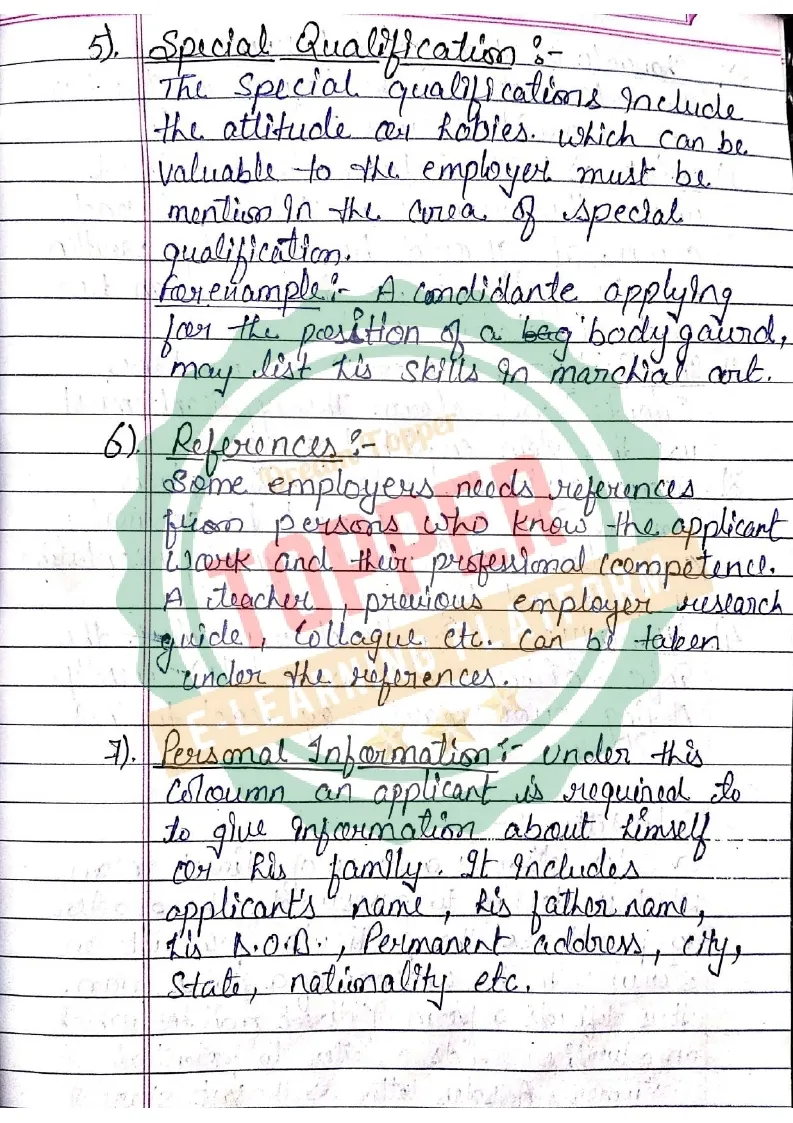 5). Special Qualification :-
The special qualifications include
the attitude or hobies. which can be
valuable to the employer must be
mention in the area of special
qualification.
For enample:- A. candidante applying
for the position of a beg body gaurd,
may list his skills in marchial art.
6). References :-
Dream Topper
Some employers needs references
from persons who know the applicant
work and their professional competence.
TOPPER
A teacher, previous employer research
guide, Collague etc. can be taken
under the references.
E-LEARNING PLATFORM
7). Personal Information :- under this
Coloumn an applicant is required to
to give information about himself
or his family. It includes
applicant's name, his father name,
his D.O.B., Permanent address, city,
State, nationality etc.